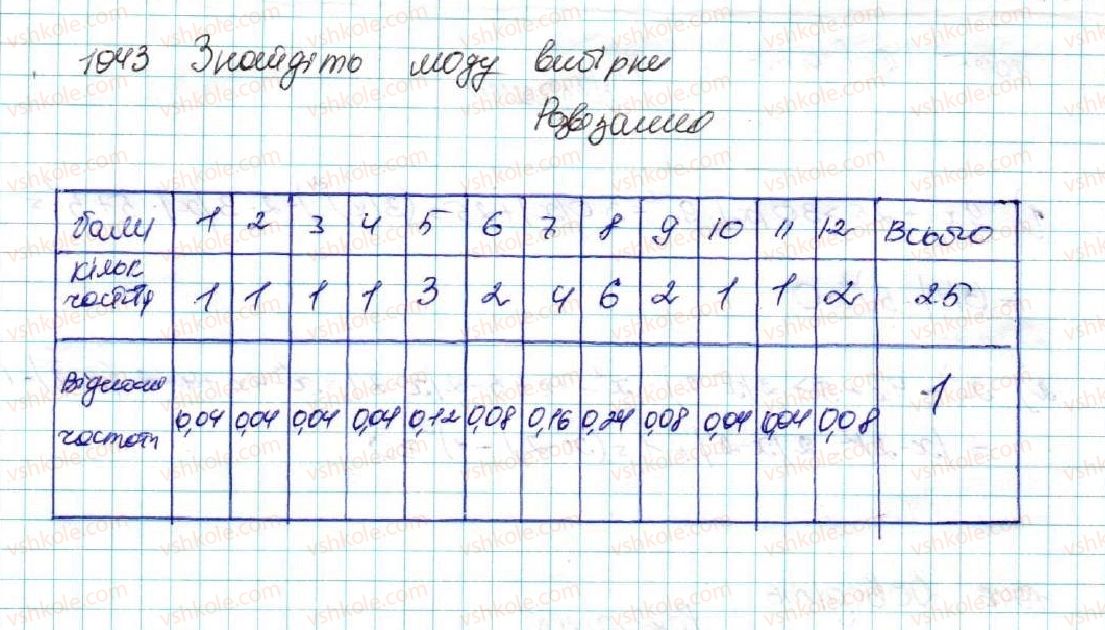 1043 Знайдіть моду вибірки
Розвозанно
бали 1 2 3 4 5 6 7 8 9 10 11 12 Всього
кільк 
частот 1 1 1 1 3 2 4 6 2 1 1 2 25
Відносно
частот 0,04 0,04 0,04 0,04 0,12 0,08 0,16 0,24 0,08 0,04 0,04 0,08 1